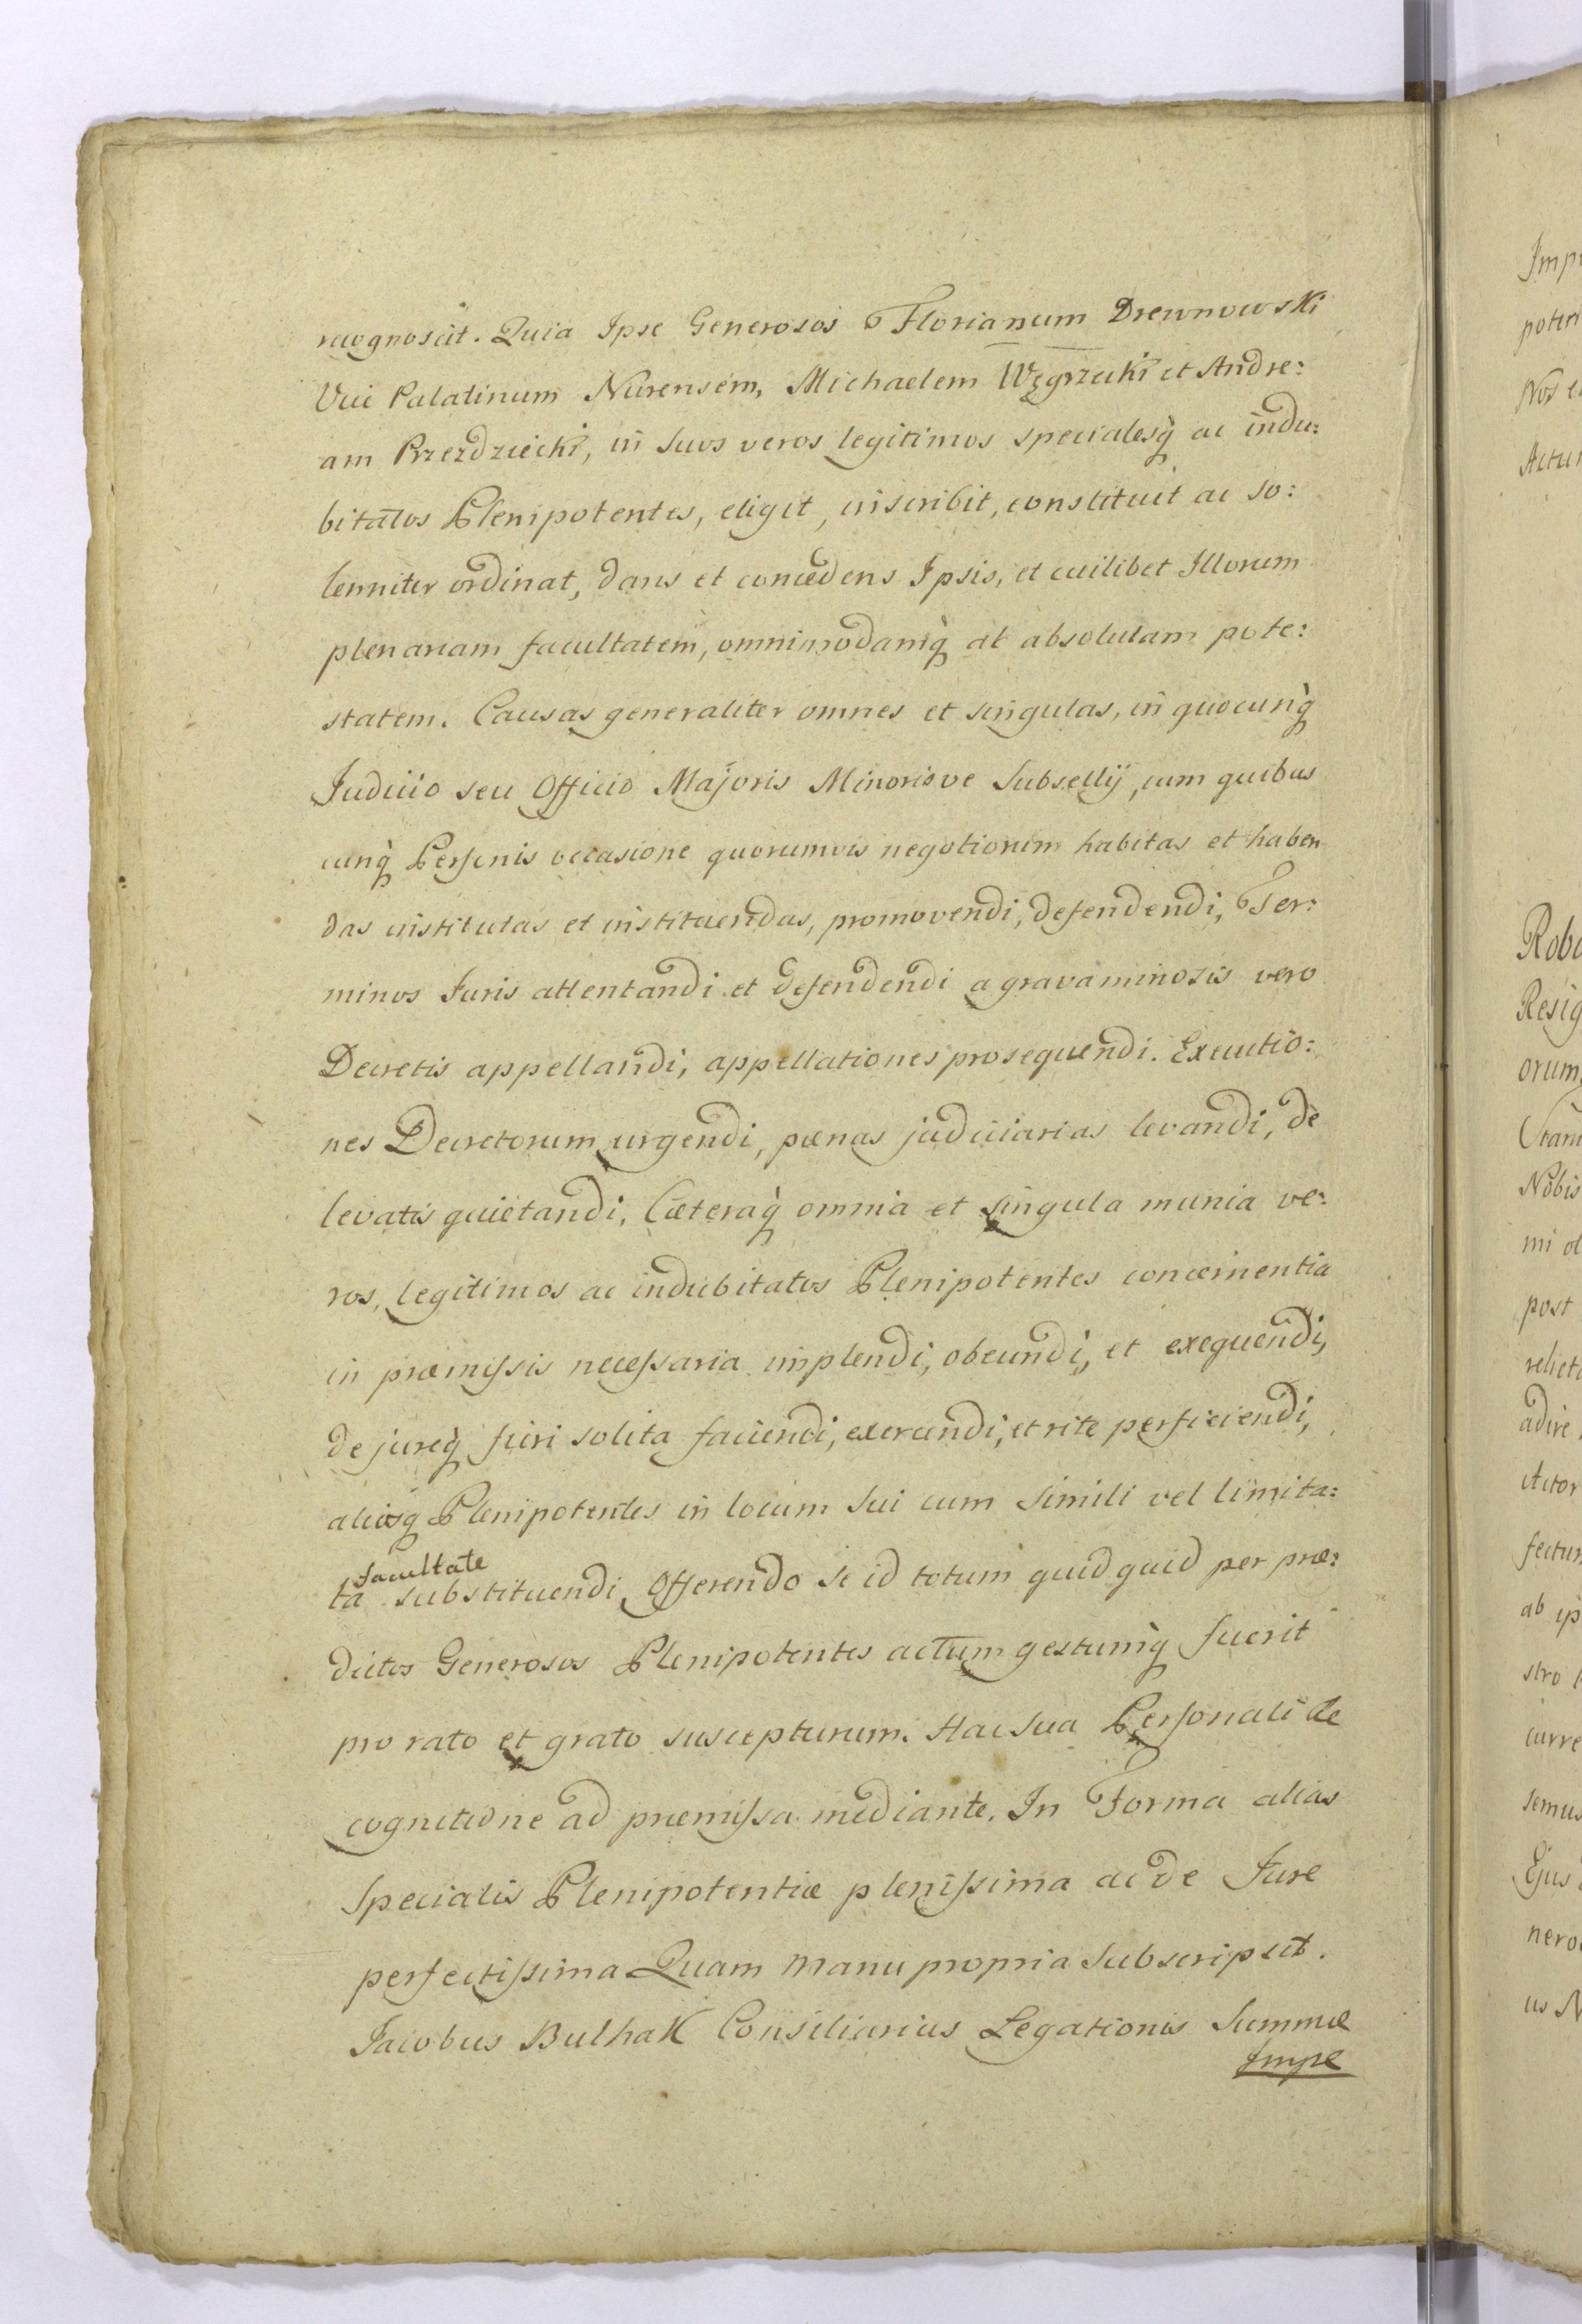 recognoscit. Quia Ipse Generosos Florianum Drewnowski
Vice Palatinum Nurensem, Michaelem Węgrzecki et Andre:
am Przezdziecki, in Suos veros legitimos specialesq̀ ac indu:
bitatos Plenipotentes, eligit, inscribit, constituit ac so:
lenniter ordinat, dans et concedens Ipsis, et cuilibet Illorum
plenariam facultatem, omnimodamq̀ at absolutam pote:
statem. Causas generaliter omnes et singulas, in quocunq̀
Judicio seu Officio Majoris Minorisve Subsellij, cum quibus
cunq̀ Personis occasione quorumvis negotiorum habitas et haben
das institutas et instituendas, promovendi, defendendi, Ter:
minos Juris attentandi et defendendi a gravaminosis vero
Decretis appellandi, appellationes prosequendi. Executio:
nes Decretorum urgendi, pœnas judiciarias levandi, de
levatis quietandi, Cæteraq̀ omnia et singula munia ve:
ros, legitimos ac indubitatos Plenipotentes concernentia
in præmissis necessaria implendi, obeundi, et exequendi,
de jureq̀ fieri solita faciendi, exercendi, et rite perficiendi,
aliosq Plenipotentes in locum Sui cum Simili vel limita:
ta facultate substituendi, Offerendo se id totum quidquid per præ:
dictos Generosos Plenipotentes actum gestumq̀ fuerit
pro rato et grato suscepturum. Hac Sua Personali Re
cognitione ad præmissa mediante. In Forma alias
Specialis Plenipotentiæ plenissima ac de Jure
perfectissima Quam manu propria Subscripsit.
Jacobus Bulhak Consiliarius Legationis Summæ
Impe
Imp
poter
Nos
Actu
Robo
Resig
orum,
Nobis
mi
post
relict
adire,
Actor
fectum
ab ip
stro
curre
semus
Ejus
nero
us N